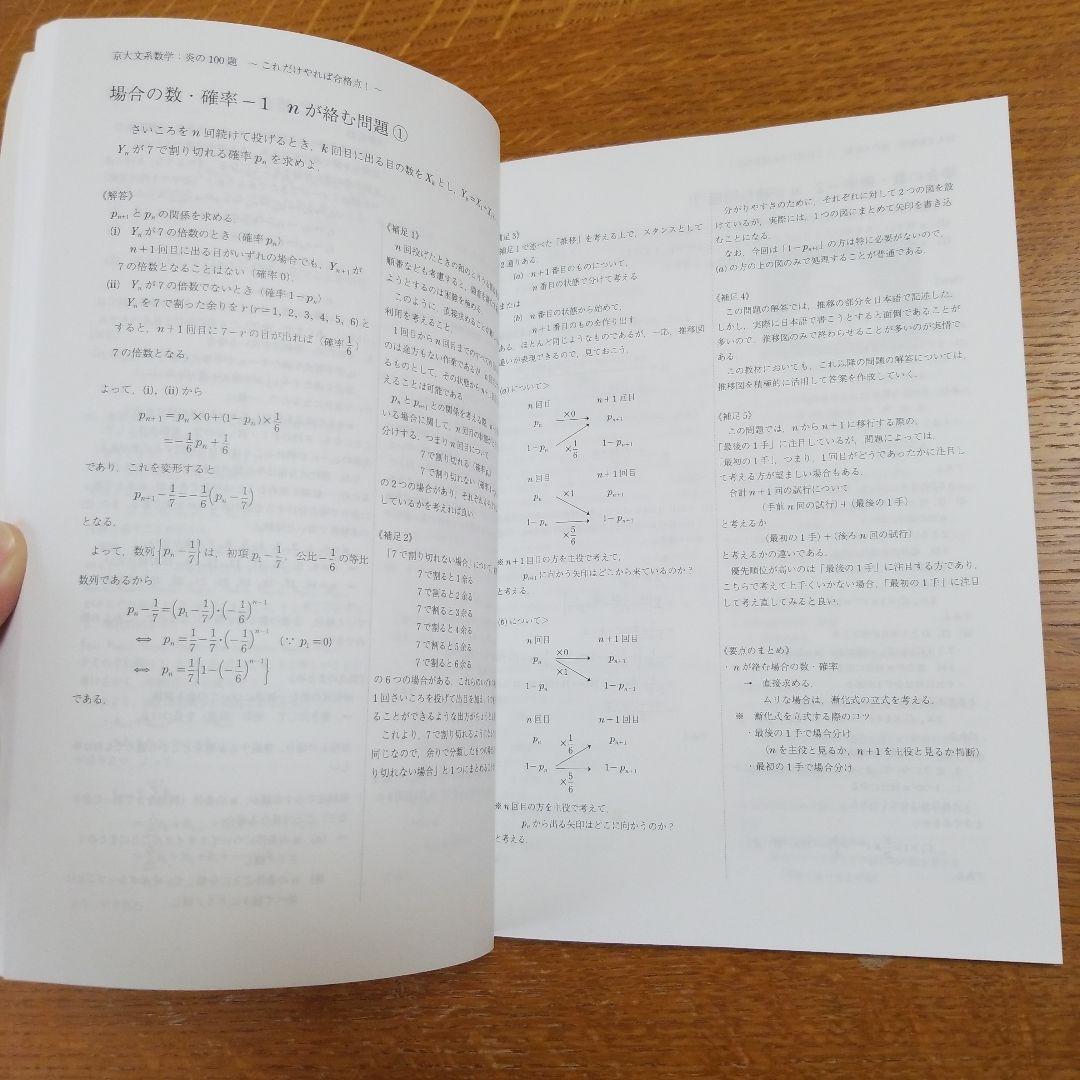 京大文系数学：炎の100題　～これだけやれば合格点！～
場合の数・確率－1　nが絡む問題①
さいころをn回続けて投げるとき，k回目に出る目の数をX_kとし，Y_n＝X_1＋X_2
Y_nが7で割り切れる確率p_nを求めよ．
《解答》
p_{n+1}とp_nの関係を求める．
(i) Y_nが7の倍数のとき（確率p_n）
n＋1回目に出る目がいずれの場合でも，Y_{n+1}が
7の倍数となることはない（確率0）．
(ii) Y_nが7の倍数でないとき（確率1－p_n）
Y_nを7で割った余りをr(r＝1，2，3，4，5，6)と
すると，n＋1回目に7－rの目が出れば（確率1/6）
7の倍数となる．
よって，(i)，(ii)から
p_{n+1}＝p_n×0＋(1－p_n)×1/6
＝－1/6 p_n＋1/6
であり，これを変形すると
p_{n+1}－1/7＝－1/6(p_n－1/7)
となる．
よって，数列{p_n－1/7}は，初項p_1－1/7，公比－1/6の等比
数列であるから
p_n－1/7＝(p_1－1/7)・(－1/6)^{n－1}
⟺ p_n＝1/7－1/7・(－1/6)^{n－1}　(∵ p_1＝0)
⟺ p_n＝1/7{1－(－1/6)^{n－1}}
である．
《補足1》
n回投げたときの和の
順番なども考慮すると，
ようとするのは
利用を考えること．
このように，直接求めること
1回目からn回目までのすべて
のは途方もない作業であるが，n回
るものとして，その状態から
えることは可能である．
p_nとp_{n+1}との関係を考える際，
いる場合に関して，n回目の状態
分けする．つまりn回目について
7で割り切れる（確率p_n）
7で割り切れない（確率1－
の2つの場合があり，それぞれ
しているかを考えれば良い．
《補足2》
「7で割り切れない場合」について，
7で割ると1余る
7で割ると2余る
7で割ると3余る
7で割ると4余る
7で割ると5余る
7で割ると6余る
の6つの場合がある．これらの
1回さいころを投げて出目を加え，
ることができるような出方が
これより，7で割り切れるように
同じなので，余りで分類した6つの
り切れない場合」と1つにまとめる
補足3》
補足1で述べた「推移」を考える上で，スタンスとして
2通りある．
(a) n＋1番目のものについて，
n番目の状態で分けて考える
または
(b) n番目の状態から始めて，
n＋1番目のものを作り出す
ある．ほとんど同じようなものであるが，一応，推移図
違いが表現できるので，見ておこう．
(a)について＞
n回目　n＋1回目
p_n　×0　p_{n+1}
1－p_n　×1/6　1－p_{n+1}
n回目　n＋1回目
p_n　×1　p_{n+1}
1－p_n　×5/6　1－p_{n+1}
※n＋1回目の方を主役で考えて，
p_{n+1}に向かう矢印はどこから来ているのか？
と考える．
(b)について＞
n回目　n＋1回目
p_n　×0　p_{n+1}
1－p_n　×1　1－p_{n+1}
n回目　n＋1回目
p_n　×1/6　p_{n+1}
1－p_n　×5/6　1－p_{n+1}
※n回目の方を主役で考えて，
p_nから出る矢印はどこに向かうのか？
と考える．
分かりやすさのために，それぞれに対して2つの図を設
けているが，実際には，1つの図にまとめて矢印を書き込
むことになる．
なお，今回は「1－p_{n+1}」の方は特に必要がないので，
(a)の方の上の図のみで処理することが普通である．
《補足4》
この問題の解答では，推移の部分を日本語で記述した．
しかし，実際に日本語で書こうとすると面倒であることが
多いので，推移図のみで終わらせることが多いのが実情で
ある．
この教材においても，これ以降の問題の解答については，
推移図を積極的に活用して答案を作成していく．
《補足5》
この問題では，nからn＋1に移行する際の，
「最後の1手」に注目しているが，問題によっては，
「最初の1手」，つまり，1回目がどうであったかに注目し
て考える方が望ましい場合もある．
合計n＋1回の試行について
(手前n回の試行)＋(最後の1手)
と考えるか
(最初の1手)＋(後ろn回の試行)
と考えるかの違いである．
優先順位が高いのは「最後の1手」に注目する方であり，
こちらで考えて上手くいかない場合，「最初の1手」に注目
して考え直してみると良い．
《要点のまとめ》
・nが絡む場合の数・確率
→　直接求める．
ムリな場合は，漸化式の立式を考える．
※　漸化式を立式する際のコツ
・最後の1手で場合分け
(nを主役と見るか，n＋1を主役と見るか判断)
・最初の1手で場合分け